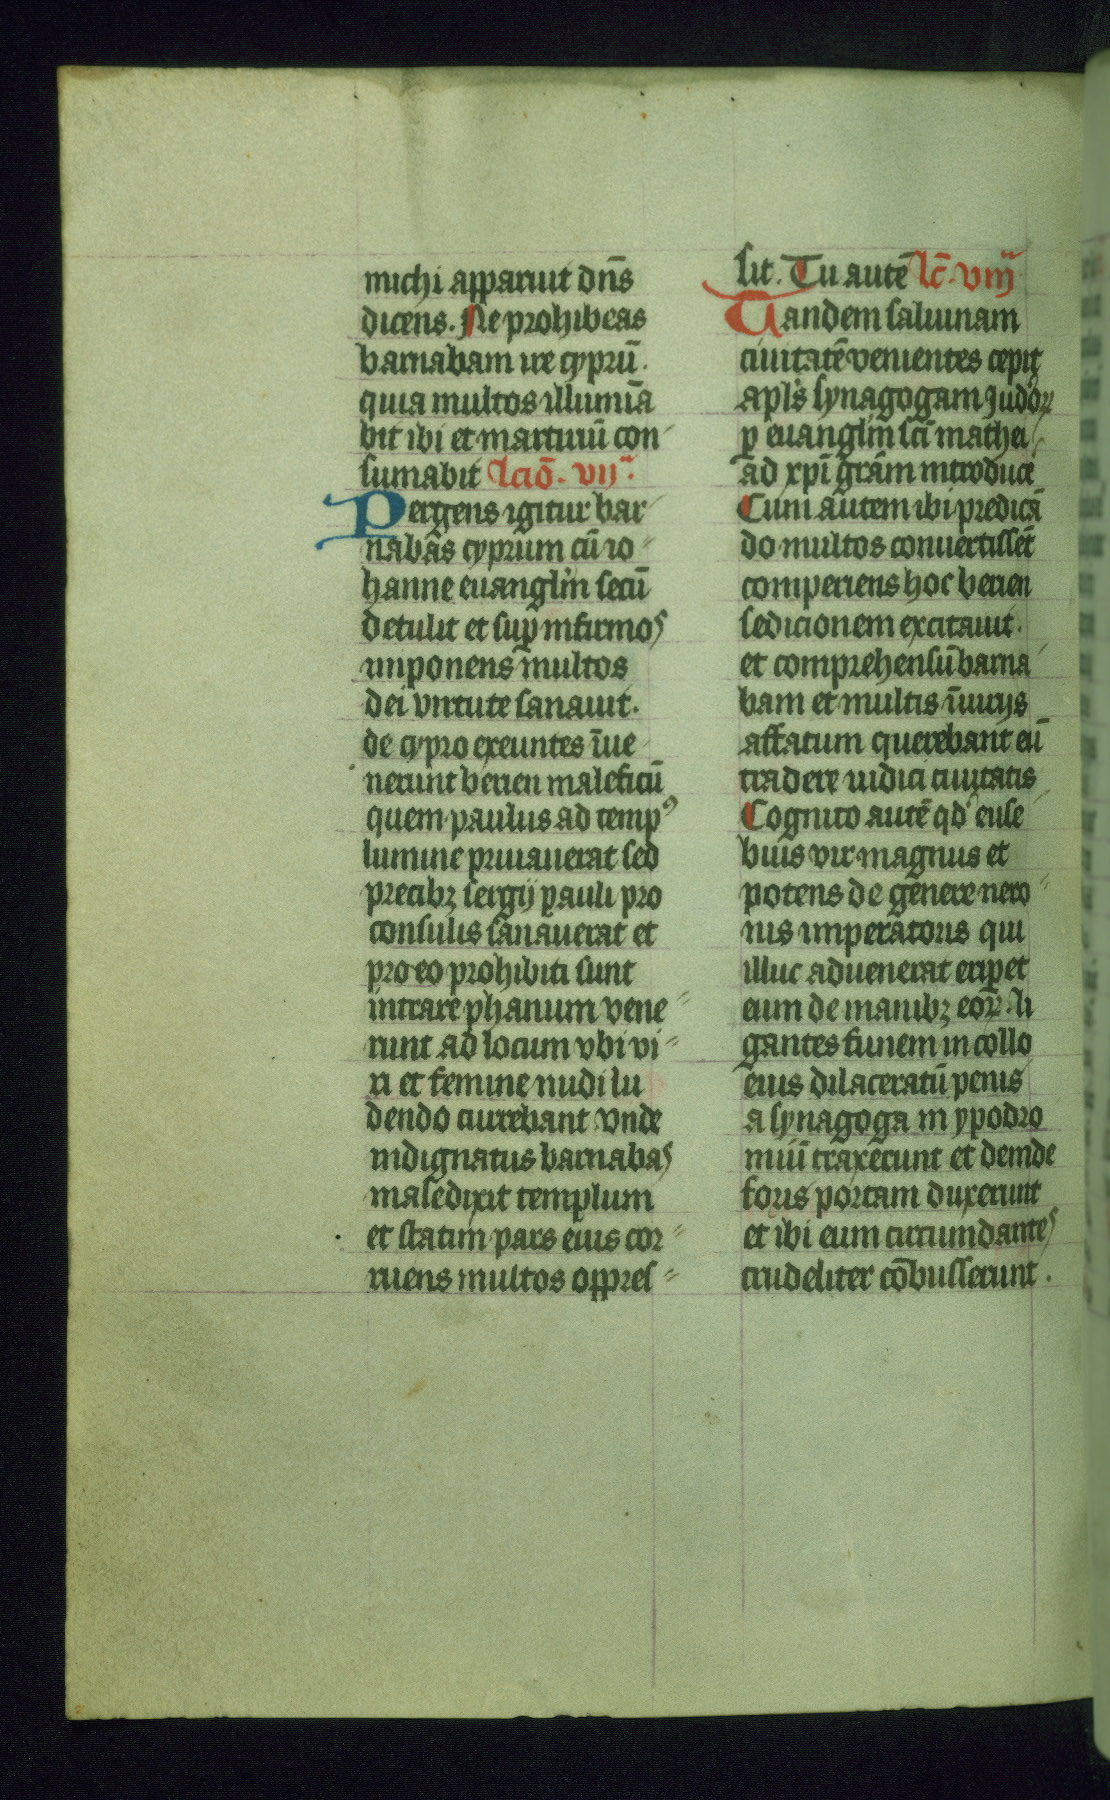 michi apparuit dn̄s
dicens. Ne prohibeas
barnabam ire cyprū.
quia multos illumīa
bit ibi et martiriū con
sumabit lctō. vijᵃ.
Pergens igitur bar
nabas cyprum cū io
hanne euangliū secū
detulit et sup infirmos
imponens multos
dei virtute sanauit.
de cypro exeuntes īue
nerunt berieu maleficū
quem paulus ad tempꝰ
lumine priuauerat sed
precibꝫ sergij pauli pro
consulis sanauerat et
pro eo prohibiti sunt
intrare phanum vene
runt ad locum vbi vi
ri et femine nudi lu
dendo currebant vnde
indignatus barnabas
maledixit templum
et statim pars eius cor
ruens multos oppres
sit. Tu autē lc̄. viijᵃ
Tandem saluinam
ciuitatē venientes cepit
apl's synagogam Judoꝝ
ꝑ euangliū sc̄i mathei
ad xpī grām introduce
Cum autem ibi predicā
do multos conuertisset
comperiens hoc berieu
sedicionem excitauit.
et comprehensū barna
bam et multis īiurijs
affatum querebant eū
tradere iudici ciuitatis
Cognito autē qd' euse
bius vir magnus et
potens de genere nero
nis imperatoris qui
illuc aduenerat eriꝑet
eum de manibꝫ eoꝝ. li
gantes funem in collo
eius dilaceratū penis
a synagoga in ypodro
miū traxerunt et deinde
foris portam duxerunt
et ibi eum circumdantes
crudeliter cōbusserunt.